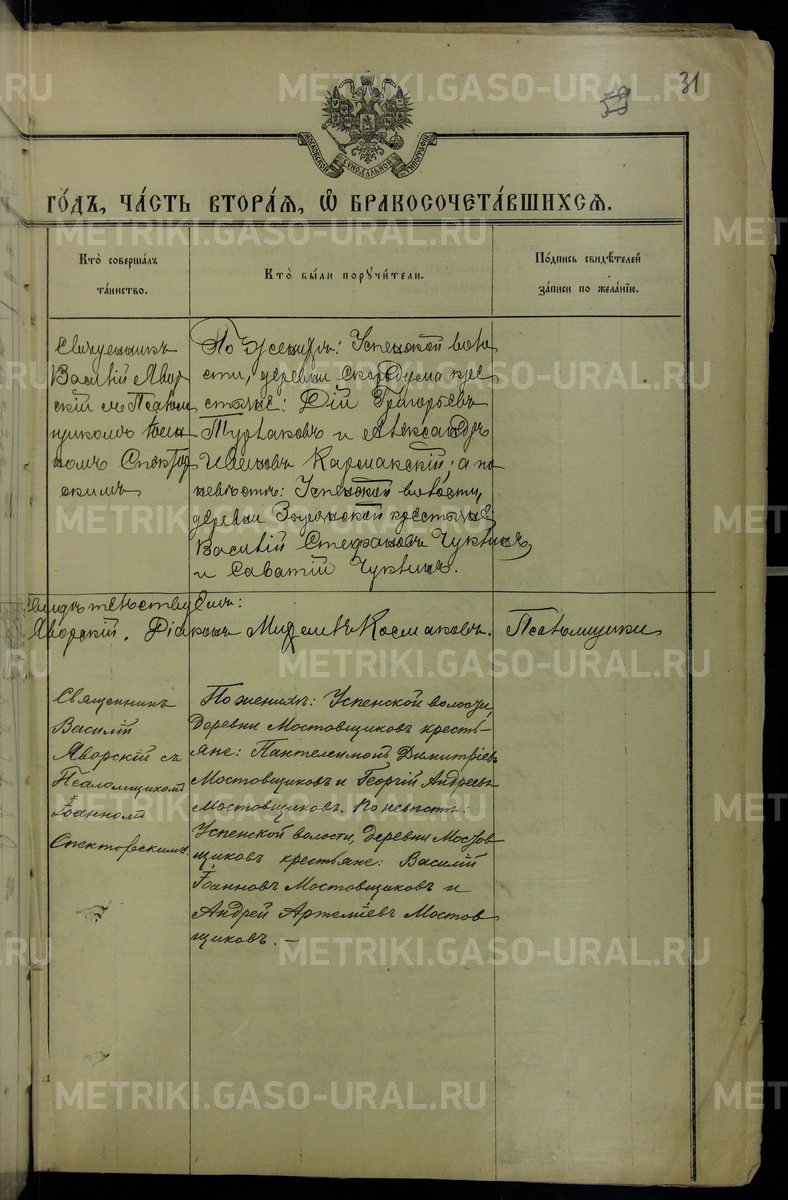 31
59
МОСКОВСКОЙ СѴНОДАЛЬНОЙ ТИПОГРАФІИ
ГО́ДЪ, ЧА́СТЬ ВТОРА́Я, Ѿ БРАКОСОЧЕТА́ВШИХСЯ.
Кто̀ совершалъ
та́инство.
Кто̀ бы́ли поручи́тели.
По́дпись свидѣ́телей
за́писи по жела́нію.
Священникъ
Василій Явор
скій съ Псалом
щикомъ Іоан
номъ Спектор
скимъ
По женихѣ: Успенской воло
сти, деревни Скородума кре
стьяне: Дій Григорьевъ
и Александръ
Ивановъ Кармакскій; а по
невѣстѣ: Успенской волости,
деревни крестьяне:
Василій Стефановъ Чукѣинъ
и Саватій Чукѣинъ.
Свидѣтельствуемъ:
Яворскій. Діаконъ Михаилъ Космаковъ. Псаломщики
Священникъ
Василій
Яворскій съ
Псаломщикомъ
Іоанномъ
Спекторскимъ
По женихѣ: Успенской волости,
деревни Мостовщиковъ кресть-
яне: Пантелеимонъ Димитріевъ
Мостовщиковъ и Георгій Андреевъ
Мостовщиковъ. По невѣстѣ:
Успенской волости, деревни Мостов
щиковъ крестьяне: Василій
Іоанновъ Мостовщиковъ и
Андрей Артеміевъ Мостов
щиковъ. —
METRIKI.GASO-URAL.RU